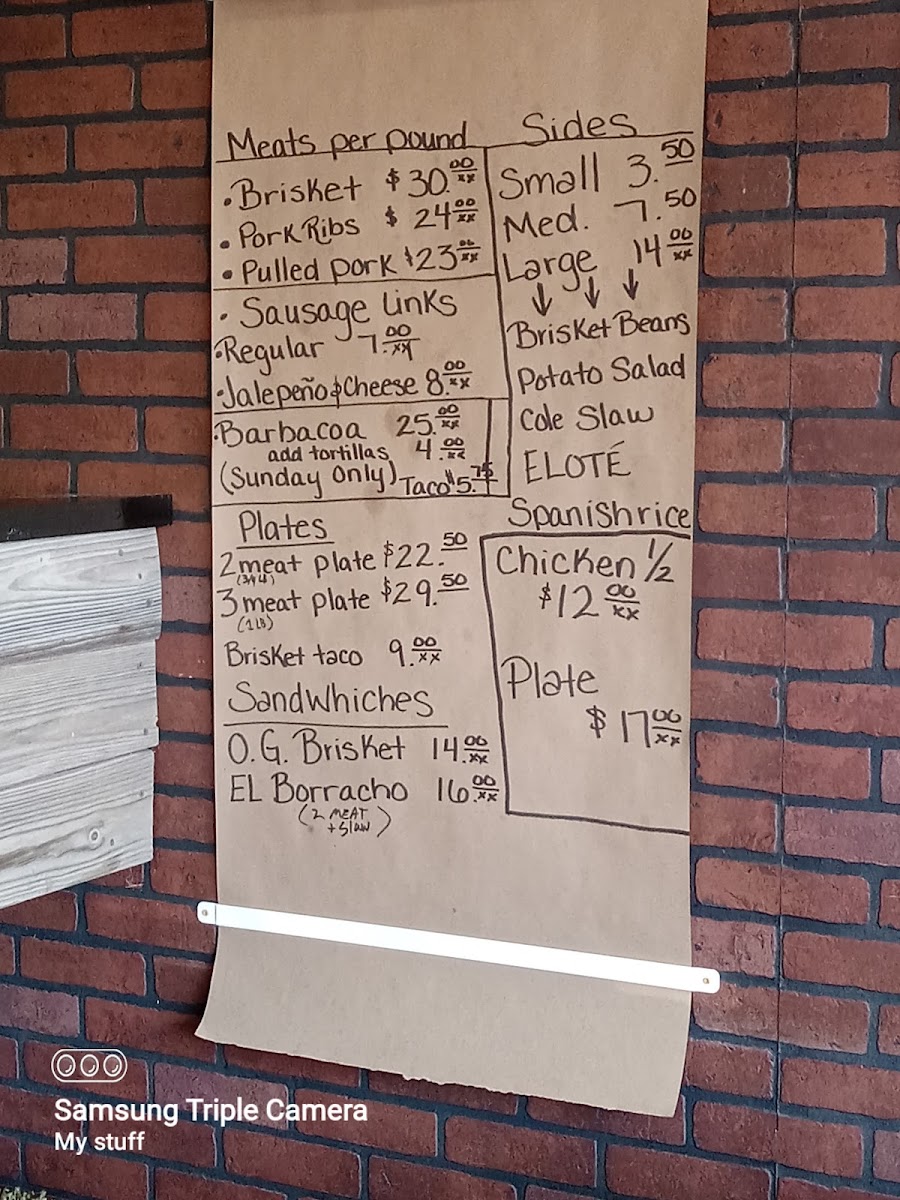 Meats per pound
• Brisket $30.00/xx
• Pork Ribs $ 24.00/xx
• Pulled pork $23.00/xx
• Sausage Links
• Regular 7.00/xx
• Jalepeño & Cheese 8.00/xx
• Barbacoa 25.00/xx
add tortillas 4.00/xx
(Sunday Only) Taco $5.75
Plates
2 meat plate $22.50
(3/4 LB)
3 meat plate $29.50
(1 LB)
Brisket taco 9.00/xx
Sandwhiches
O.G. Brisket 14.00/xx
EL Borracho 16.00/xx
(2 MEAT
+ Slaw)
Sides
Small 3.50
Med. 7.50
Large 14.00/xx
↓ ↓ ↓
Brisket Beans
Potato Salad
Cole Slaw
ELOTÉ
Spanish rice
Chicken 1/2
$12.00/xx
Plate
$17.00/xx
Samsung Triple Camera
My stuff